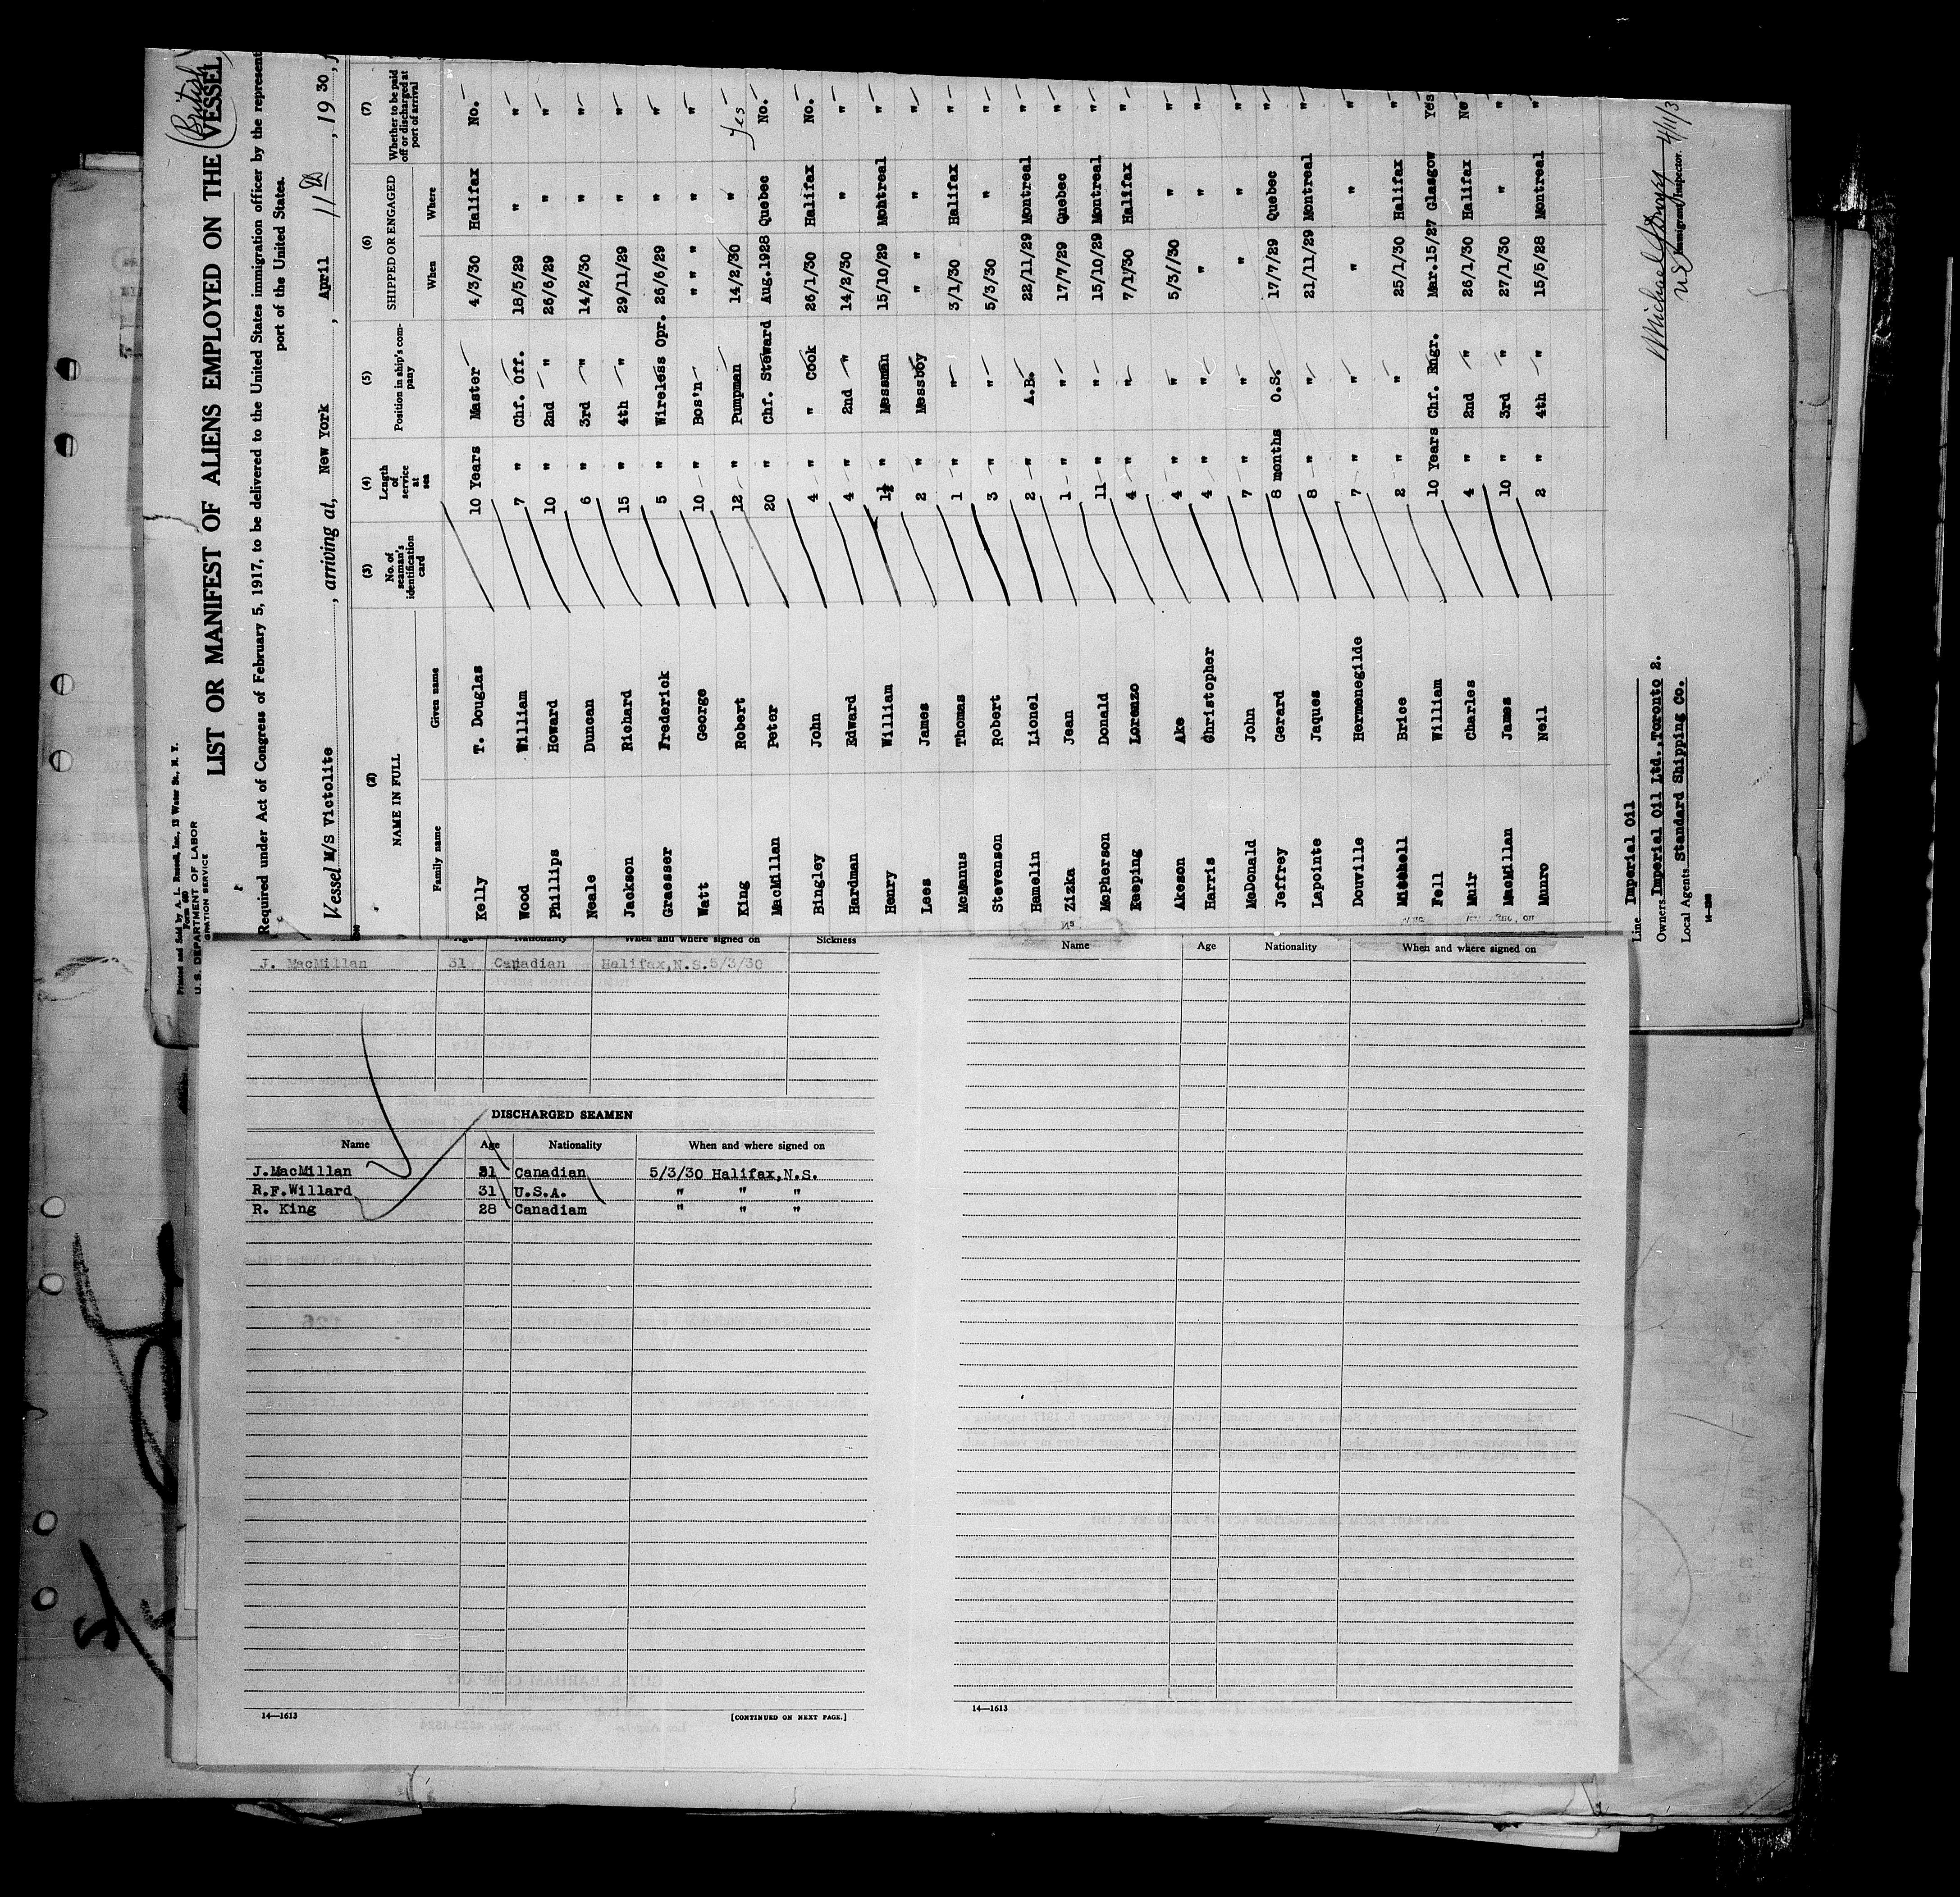 Printed and Sold by A. L. Russell, Inc., 13 Water St., N. Y.
Form 680
U. S. DEPARTMENT OF LABOR
GRATION SERVICE
(British)
LIST OR MANIFEST OF ALIENS EMPLOYED ON THE VESSEL
Required under Act of Congress of February 5, 1917, to be delivered to the United States immigration officer by the represent
port of the United States.
Vessel M/S Victolite, arriving at, New York, April 11, 1930,
(2) (3) (4) (5) (6) (7)
NAME IN FULL No. of seaman's identification card Length of service at sea Position in ship's company SHIPPED OR ENGAGED Whether to be paid off or discharged at port of arrival
Family name Given name When Where
Kelly T. Douglas 10 Years Master 4/3/30 Halifax No.
Wood William 7 " Chf. Off. 18/5/29 " "
Phillips Howard 10 " 2nd " 26/6/29 " "
Neale Duncan 6 " 3rd " 14/2/30 " "
Jackson Richard 15 " 4th " 29/11/29 " "
Graesser Frederick 5 " Wireless Opr. 26/6/29 " "
Watt George 10 " Bos'n " " " " "
King Robert 12 " Pumpman 14/2/30 " Yes
MacMillan Peter 20 " Chf. Steward Aug.1928 Quebec No.
Bingley John 4 " " Cook 26/1/30 Halifax No.
Hardman Edward 4 " 2nd " 14/2/30 " "
Henry William 1½ " Messman 15/10/29 Montreal "
Lees James 2 " Messboy " " "
McManus Thomas 1 " " 3/1/30 Halifax "
Stevenson Robert 3 " " 5/3/30 " "
Hamelin Lionel 2 " A.B. 22/11/29 Montreal "
Zizka Jean 1 " " 17/7/29 Quebec "
McPherson Donald 11 " " 15/10/29 Montreal "
Keeping Lorenzo 4 " " 7/1/30 Halifax "
Akeson Ake 4 " " 5/3//30 " "
Harris Christopher 4 " " " " "
McDonald John 7 " " " " "
Jeffrey Gerard 8 months O.S. 17/7/29 Quebec "
Lapointe Jaques 8 " " 21/11/29 Montreal "
Douville Hermenegilde 7 " " " " "
Mitchell Brice 2 " " 25/1/30 Halifax "
Fell William 10 Years Chf. Engr. Mar.15/27 Glasgow Yes
Muir Charles 4 " 2nd " 26/1/30 Halifax No
MacMillan James 10 " 3rd " 27/1/30 " "
Munro Neil 2 " 4th " 15/5/28 Montreal "
Line Imperial Oil
Owners Imperial Oil Ltd.,Toronto 2.
Local Agents Standard Shipping Co.
Immigrant Inspector.
Age Nationality When and where signed on Sickness
J. MacMillan 31 Canadian Halifax,N.S.5/3/30
DISCHARGED SEAMEN
Name Age Nationality When and where signed on
J.MacMillan 31 Canadian 5/3/30 Halifax,N.S.
R.F.Willard 31 U.S.A. " " "
R. King 28 Canadiam " " "
14—1613 [CONTINUED ON NEXT PAGE.]
Name Age Nationality When and where signed on
14—1613